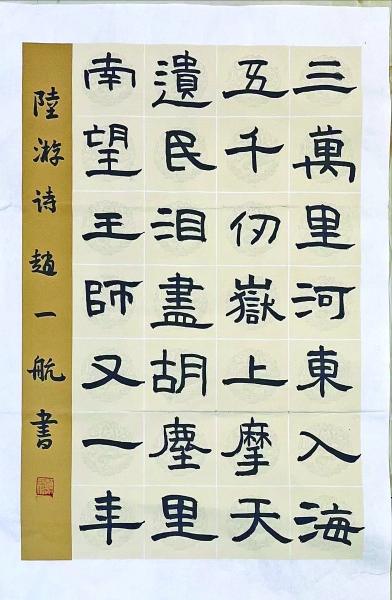 三萬里河東入海
五千仞嶽上摩天
遺民泪盡胡塵里
南望王師又一年
陸游诗趙一航書